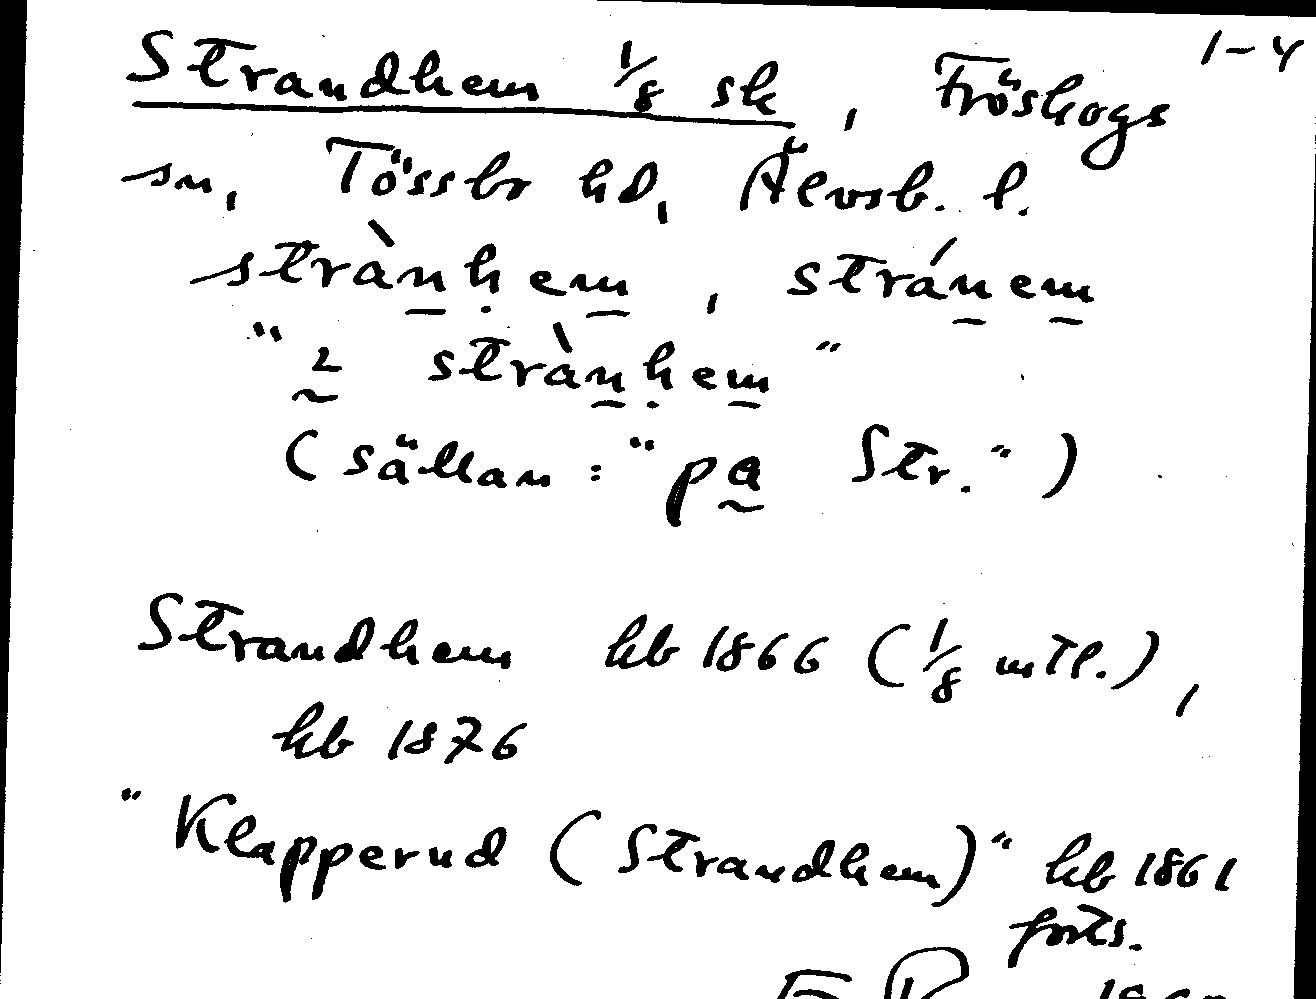 1-4
Strandhem 1/8 sk, Fröskogs
sn, Tössbo hd, Älvsb. l.
strànhem, stránem
"2 strànhem"
(sällan: "pa Str.")
Strandhem hb 1866 (1/8 mtl.),
hb 1876
"Klapperud (Strandhem)" hb 1861
forts.